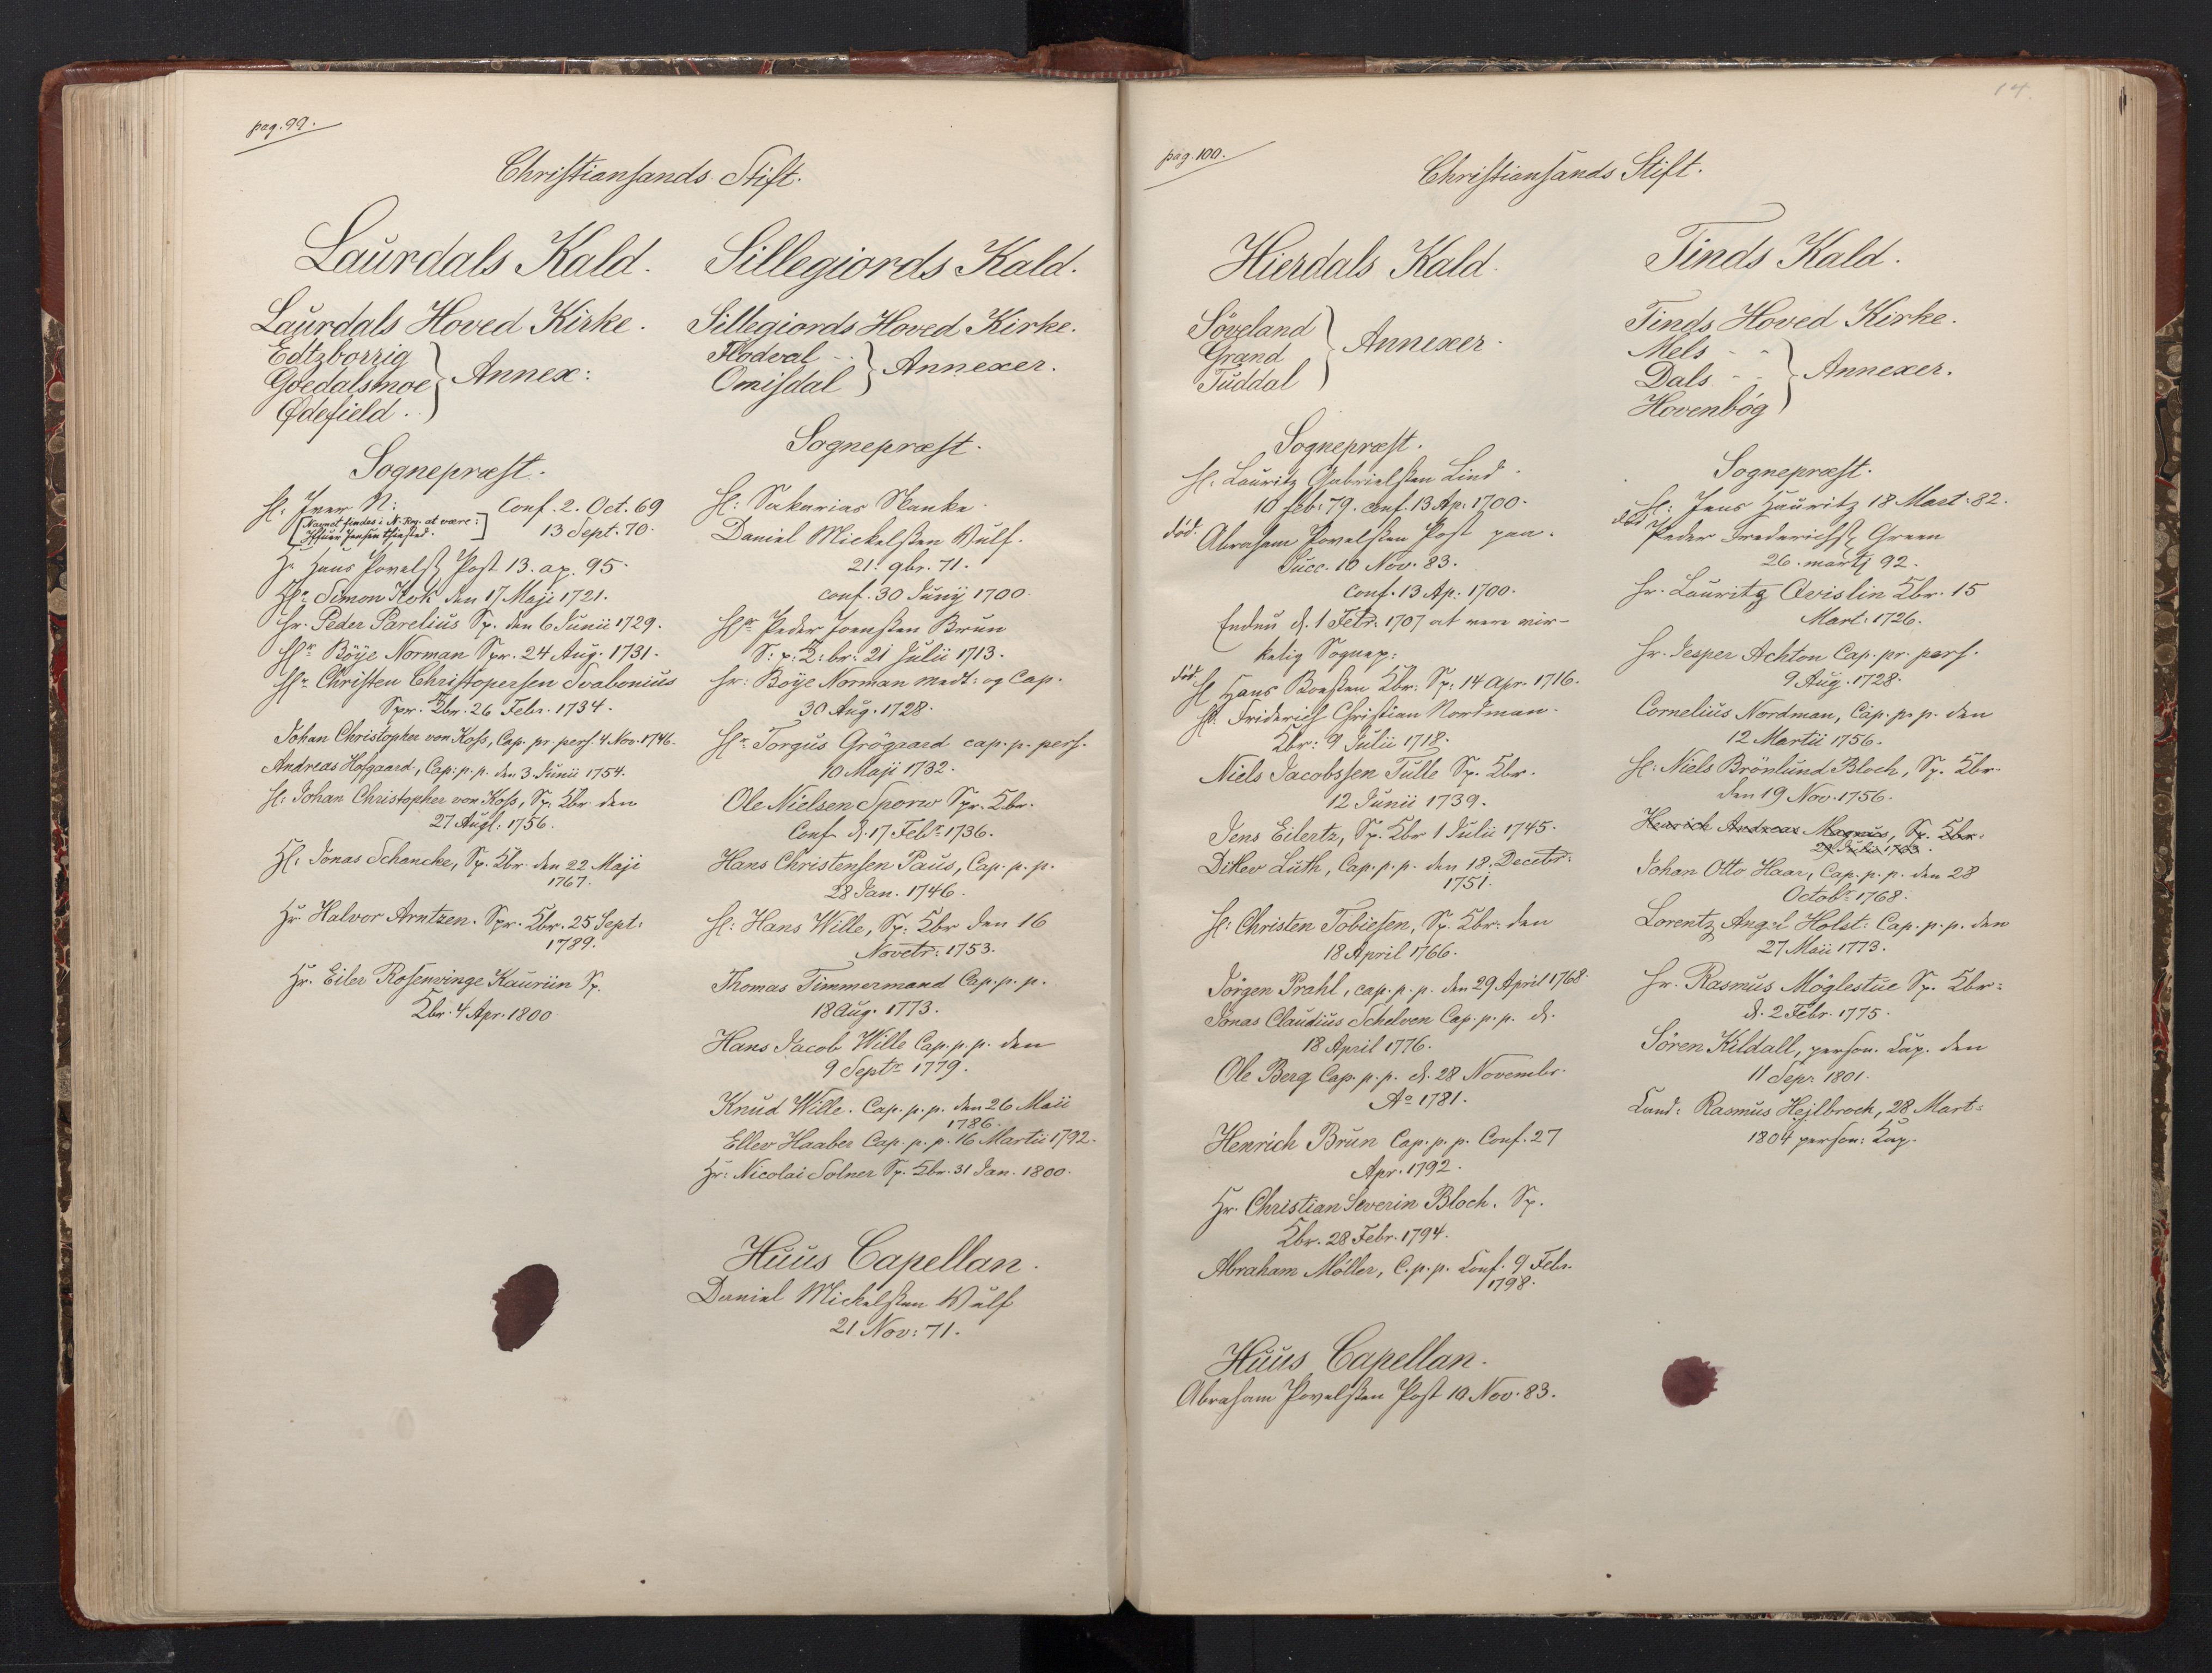 pag. 99.
Christiansands Stift.
Laurdals Kald.
Laurdals Hoved Kirke.
Edtzborrig
Goedalsmoe
Ødefield.
Annex:
Sognepræst.
H. Iver N: Conf. 2. Oct. 69
[Navnet findes i N. Reg. at være: 13 Sept. 70.
Jensen Thisted.]
Hr Hans Povels. Post 13. ap. 95.
Hr. Simon Kok den 17 Maji 1721.
Hr. Peder Parelius Sp. den 6 Junii 1729.
Hr Böye Norman Spr. 24 Aug. 1731.
Hr Christen Christopersen Svabonius
Spr. Kbr. 26 Febr. 1734.
Johan Christopher von Koss, Cap. pr. pers. 4 Nov. 1746.
Andreas Hofgaard, Cap: p. p. den 3. Junii 1754.
H: Johan Christopher von Koss, Sp. Kbr den
27 Augl: 1756.
H: Jonas Schancke, Sp. Kbr. den 22 Maji
1767.
Hr. Halvor Arntzen. Spr. Kbr. 25 Sept:
1789.
Hr. Eiler Rosenvinge Kauriin Sp.
Kbr. 4 Apr. 1800
Sillegiords Kald.
Sillegiords Hoved Kirke.
Flodeval
Omisdal
Annexer.
Sognepræst.
H: Sakarias Skanke
Daniel Mickelsken Wulf.
21. 9br. 71.
conf. 30 Junij 1700.
Hr Peder Joensken Brun
S: p: K: br: 21 Julii 1713.
Hr: Boye Norman medt: og Cap.
30 Aug. 1728.
Hr Torgus Grögaard cap. p. pers.
10 Maji 1732.
Ole Nielsen Sporw Spr. Kbr.
Conf. d. 17 Febr 1736.
Hans Christensen Paus, Cap. p. p.
28 Jan. 1746.
H: Hans Wille, Sp: Kbr den 16
Novetr: 1753.
Thomas Timmermand Cap. p. p.
18 Aug. 1773.
Hans Jacob Wille Cap. p. p. den
9 Septr 1779.
Knud Wille. Cap. p. p. den 26 Maii
1786.
Ellev Haaber Cap. p. p. 16 Martii 1792.
Hr: Nicolai Solner Sp. Kbr. 31 Jan. 1800.
Huus Capellan.
Daniel Mickelsken Wulf
21. Nov: 71.
14.
pag. 100.
Christiansands Stift.
Hierdals Kald.
Söveland
Grand
Tuddal
Annexer.
Sognepræst.
H. Lauritz Gabrielsken Lind
10 feb: 79. conf. 13 Ap: 1700.
död. Abraham Povelsken Post paa.
Succ. 10 Nov. 83.
conf. 13 Ap: 1700.
Endnu d. 1 Febr: 1707 at være vir-
kelig Sognep:
död. H Hans Boesken Kbr: Sp: 14 Apr. 1716.
H. Friderich Christian Nordman.
Kbr: 9 Julii 1718.
Niels Jacobssen Tulle Sp. Kbr.
12 Junii 1739.
Jens Eilertz, Sp. Kbr 1 Julii 1745.
Ditlev Luth, Cap. p. p. den 18. Decebr:
1751.
H: Christen Tobiesen, Sp. Kbr: den
18 April 1766.
Jörgen Prahl, cap. p. p. den 29 April 1768.
Jonas Claudius Schelven Cap. p. p. d.
18 April 1776.
Ole Berg Cap. p. p. d. 28 Novembr.
Ao 1781.
Henrich Brun Cap. p. p. Conf. 27
Apr. 1792.
Hr. Christian Severin Bloch. Sp.
Kbr. 28 Febr. 1794.
Abraham Möller, C. p. p. Conf. 9 Febr.
1798.
Huus Capellan.
Abraham Povelsken Post 10 Nov. 83.
Tinds Kald.
Tinds Hoved Kirke.
Mels
Dals
Hovenbög
Annexer.
Sognepræst.
H: Jens Lauritz 18 Mart: 82.
död Peder Frederichs. Green
26. martij 92.
Hr. Lauritz Qvislin Kbr. 15
Mart: 1726.
Hr. Jesper Achton Cap. pr. pers.
9 Aug. 1728.
Cornelius Nordman, Cap. p. p. den
12 Martii 1756.
H: Niels Brönlund Bloch, Sp. Kbr.
den 19 Nov. 1756.
Henrich Andreas Magnus, Sp. Kbr.
29 Julii 1763.
Johan Otto Haar, Cap. p. p. den 28
Octobr 1768.
Lorentz Angel Holst: Cap. p. p. den
27 Maii 1773.
Hr. Rasmus Möglestue Sp. Kbr:
d. 2 Febr. 1775.
Sören Kildall, person. Cap. den
11 Sep: 1801.
Cand: Rasmus Hejlbroch, 28 Mart:
1804 person: Cap.